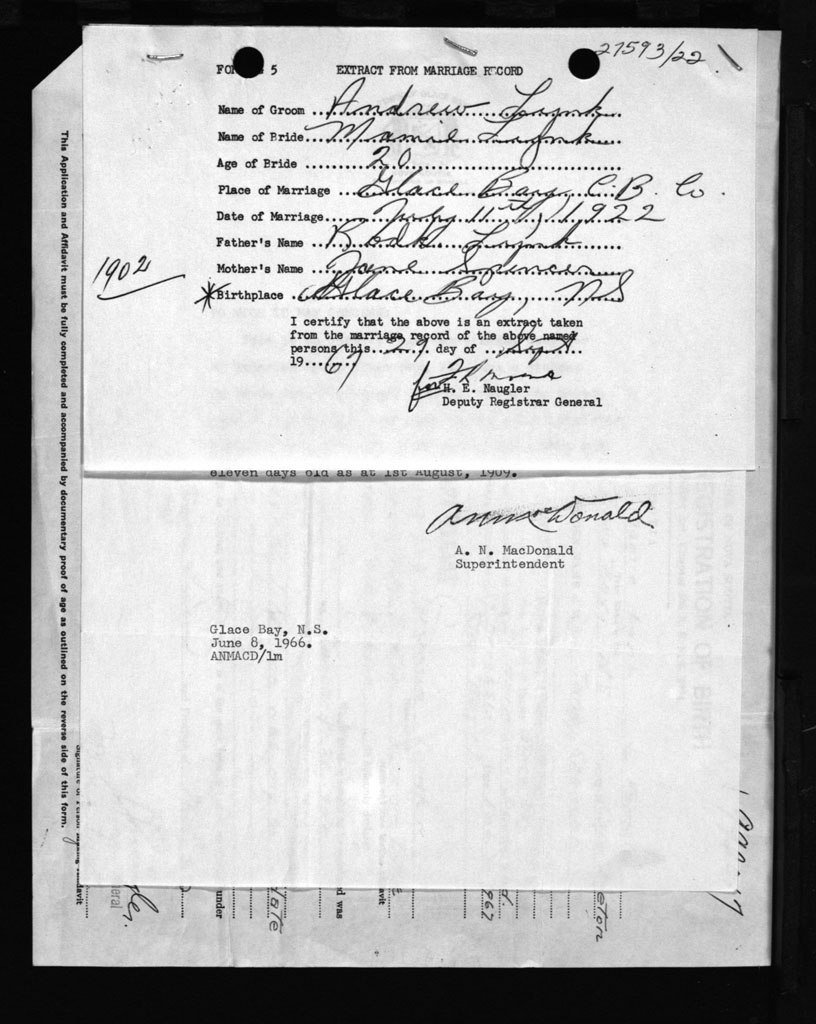 27593/22
FO 5 EXTRACT FROM MARRIAGE RECORD
Name of Groom Andrew Lynk
Name of Bride Mamie Lynk
Age of Bride 20
Place of Marriage Glace Bay, C.B. Co.
Date of Marriage July 11th, 1922
Father's Name Lynk
Mother's Name Jane Spencer
1902
*Birthplace Glace Bay, NS
I certify that the above is an extract taken
from the marriage record of the above named
persons this 29 day of Sept
19 67
for
H. E. Naugler
Deputy Registrar General
eleven days old as at 1st August, 1909.
A. N. MacDonald
Superintendent
Glace Bay, N.S.
June 8, 1966.
ANMACD/lm
This Application and Affidavit must be fully completed and accompanied by documentary proof of age as outlined on the reverse side of this form.
under
d was